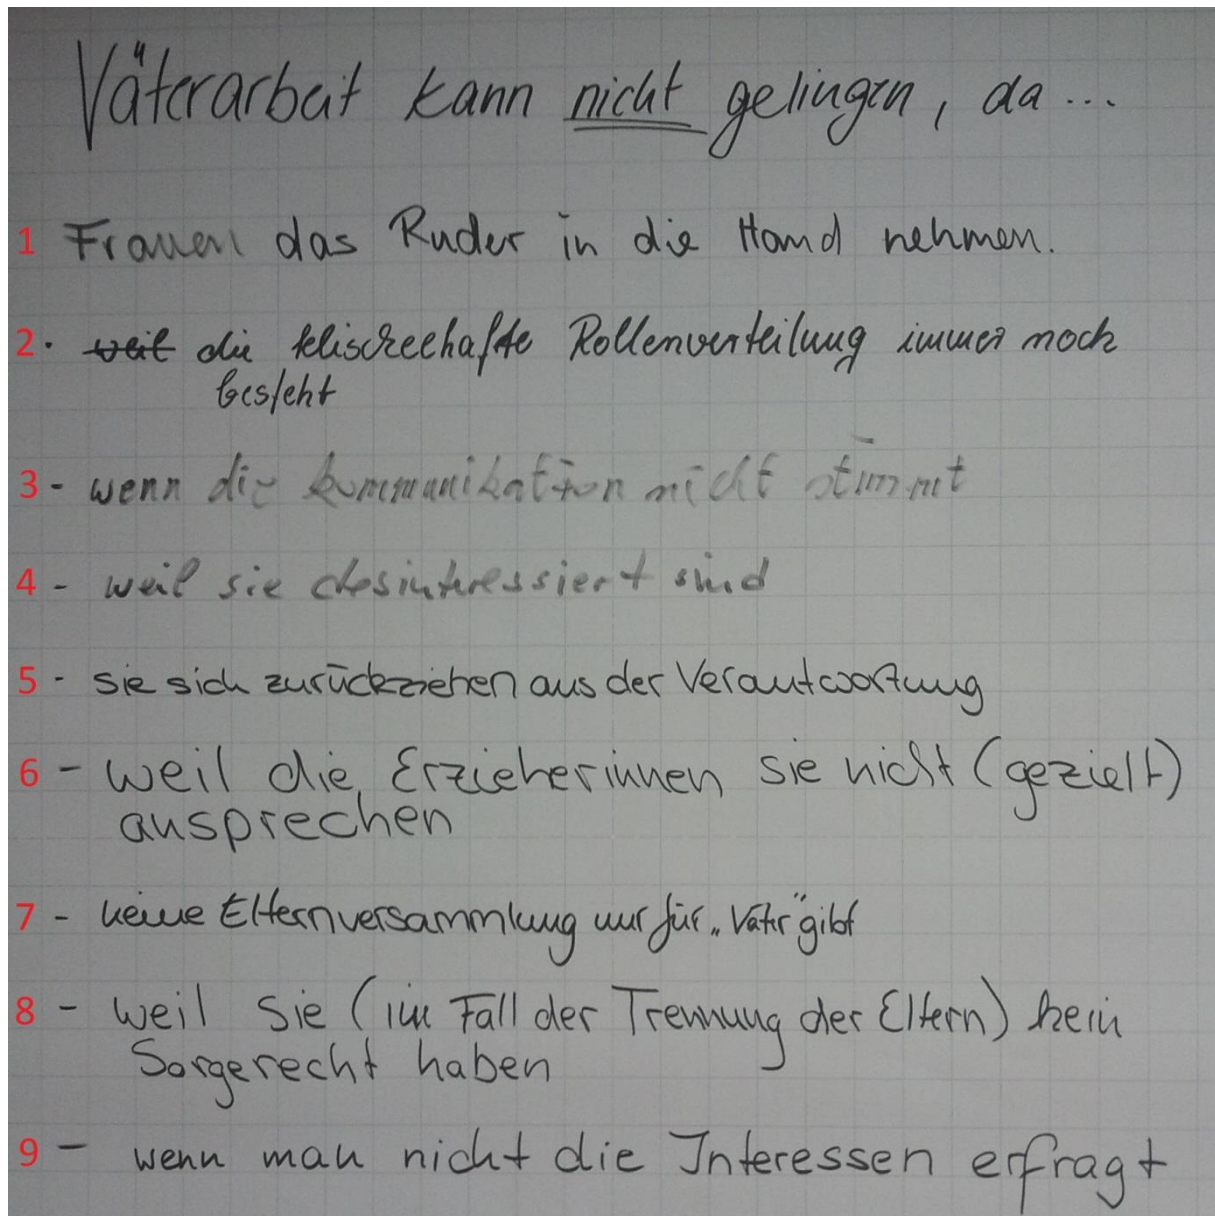 Väterarbeit kann nicht gelingen, da...
1 Frauen das Ruder in die Hand nehmen.
2. weil die klischeehafte Rollenverteilung immer noch
besteht
3 - wenn die kommunikation nicht stimmt
4 - weil sie desinteressiert sind
5 - sie sich zurückziehen aus der Verantwortung
6 - weil die Erzieherinnen sie nicht (gezielt)
ansprechen
7 - keine Elternversammlung nur für „Väter" gibt
8 - weil Sie (im Fall der Trennung der Eltern) kein
Sorgerecht haben
9 - wenn man nicht die Interessen erfragt